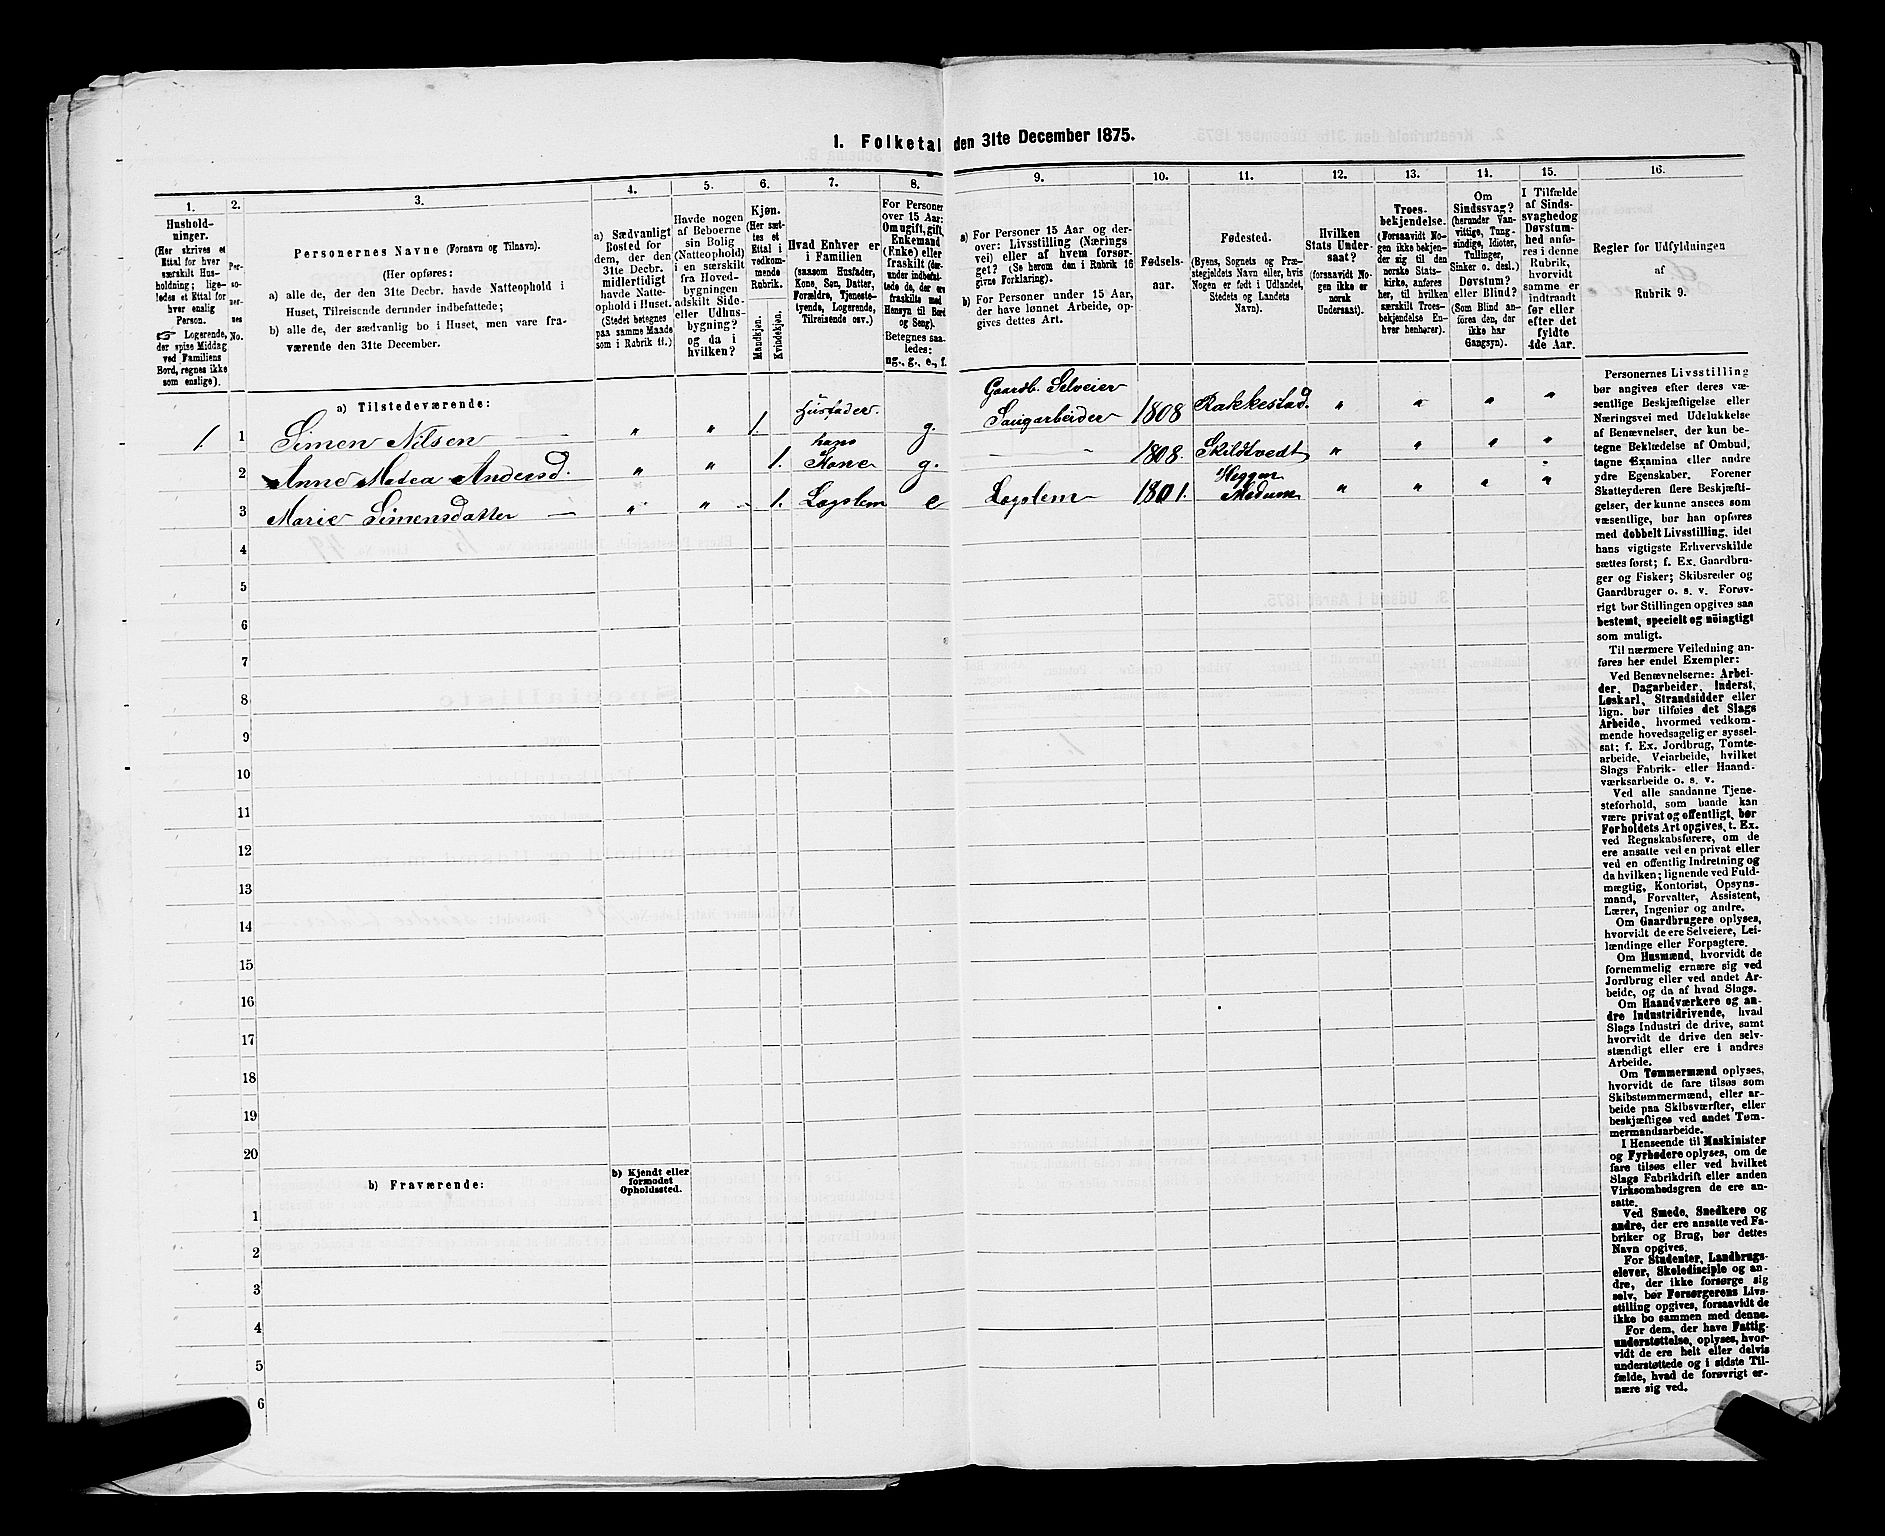 I. Folketal den 31te December 1875.
1.
Hushold-
ninger.
(Her skrives et
Ettal for hver
særskilt Hus-
holdning; lige-
ledes et Ettal for
hver enslig
Person.
☞ Logerende,
der spise Middag
ved Familiens
Bord, regnes ikke
som enslige).
2.
Per-
so-
ner-
nes
No.
3.
Personernes Navne (Fornavn og Tilnavn).
(Her opføres:
a) alle de, der den 31te Decbr. havde Natteophold i
Huset, Tilreisende derunder indbefattede;
b) alle de, der sædvanlig bo i Huset, men vare fra-
værende den 31te December.
4.
a) Sædvanligt
Bosted for
dem, der den
31te Decbr.
midlertidigt
havde Natte-
ophold i Huset.
(Stedet betegnes
paa samme Maade
som i Rubrik 11.)
5.
Havde nogen
af Beboerne
sin Bolig
(Natteophold)
i en særskilt
fra Hoved-
bygningen
adskilt Side-
eller Udhus-
bygning?
og da i
hvilken?
6.
Kjøn.
(Her sæt-
tes et
Ettal i
vedkom-
mende
Rubrik.
Mandkjøn.
Kvindekjøn.
7.
Hvad Enhver er
i Familien
(saasom Husfader,
Kone, Søn, Datter,
Forældre, Tjeneste-
tyende, Logerende,
Tilreisende osv.)
8.
For Personer
over 15 Aar:
Om ugift, gift,
Enkemand
(Enke) eller
fraskilt (der-
under indbefat-
tede de, der ere
fraskilte med
Hensyn til Bord
og Seng).
Betegnes saa-
ledes:
ug., g., e., f.
9.
a) For Personer 15 Aar og der-
over: Livsstilling (Nærings
vei) eller af hvem forsør-
get? (Se herom den i Rubrik 16
givne Forklaring).
b) For Personer under 15 Aar,
der have lønnet Arbeide, op-
gives dettes Art.
10.
Fødsels-
aar.
11.
Fødested.
(Byens, Sognets og Præ-
stegjeldets Navn eller, hvis
Nogen er født i Udlandet,
Stedets og Landets
Navn).
12.
Hvilken
Stats Under-
saat?
(forsaavidt No-
gen ikke er
norsk
Undersaat).
13.
Troes-
bekjendelse.
(Forsaavidt No-
gen ikke bekjen-
der sig til den
norske Stats-
kirke, anføres
her, til hvilken
særskilt Troes-
bekjendelse En-
hver henhører).
14.
Om
Sindssvag?
(herunder Van-
vittige, Tung-
sindige, Idioter,
Tullinger,
Sinker o. desl.)
Døvstum?
eller Blind?
(Som Blind an-
føres den, der
ikke har
Gangsyn).
15.
I Tilfælde
af Sinds-
svaghed og
Døvstum-
hed anfø-
res i denne
Rubrik,
hvorvidt
samme er
indtraadt
før eller
efter det
fyldte
4de Aar.
16.
Regler for Udfyldningen
af
Rubrik 9.
a) Tilstedeværende:
1. 1 Simen Nilsen " " 1. Husfader. g. Gaardb. Selveier Saugarbeider 1808 Rakkestad. " " " "
2 Anne Matea Andersd. " " 1. hans Kone g. — " 1808. Skildtvedt " " " "
3 Marie Simensdatter — " " 1. Lægslem e Lægslem 1801. Heggen Modum " " " "
4
5
6
7
8
9
10
11
12
13
14
15
16
17
18
19
20
b) Fraværende:
b) Kjendt eller
formodet
Opholdssted.
1
2
3
4
5
6
Personernes Livsstilling
bør angives efter deres væ-
sentlige Beskjæftigelse eller
Næringsvei med Udelukkelse
af Benævnelser, der kun be-
tegne Beklædelse af Ombud,
tagne Examina eller andre
ydre Egenskaber. Forener
Skatteyderen flere Beskjæfti-
gelser, der kunne ansees som
væsentlige, bør han opføres
med dobbelt Livsstilling, idet
hans vigtigste Erhvervskilde
sættes først; f. Ex. Gaardbru-
ger og Fisker; Skibsreder og
Gaardbruger o. s. v. Forøv-
rigt bør Stillingen opgives saa
bestemt, specielt og nöiagtigt
som muligt.
Til nærmere Veiledning an-
føres her endel Exempler:
Ved Benævnelserne: Arbei-
der, Dagarbeider, Inderst,
Løskarl, Strandsidder eller
lign. bør tilføies det Slags
Arbeide, hvormed vedkom-
mende hovedsagelig er syssel-
sat; f. Ex. Jordbrug, Tomte-
arbeide, Veiarbeide, hvilket
Slags Fabrik- eller Haand-
værksarbeide o. s. v.
Ved alle saadanne Tjene-
steforhold, som baade kan
være privat og offentligt, bør
Forholdets Art opgives, t. Ex.
ved Regnskabsførere, om de
ere ansatte ved en privat eller
ved en offentlig Indretning og
da hvilken; lignende ved Fuld-
mægtig, Kontorist, Opsyns-
mand, Forvalter, Assistent,
Lærer, Ingeniør og andre.
Om Gaardbrugere oplyses,
hvorvidt de ere Selveiere, Lei-
lændinge eller Forpagtere.
Om Husmænd, hvorvidt de
fornemmelig ernære sig ved
Jordbrug eller ved andet Ar-
beide, og da af hvad Slags.
Om Haandværkere og an-
dre Industridrivende, hvad
Slags Industri de drive, samt
hvorvidt de drive den selv-
stændigt eller ere i andres
Arbeide.
Om Tømmermænd oplyses,
hvorvidt de fare tilsøs som
Skibstømmermænd, eller ar-
beide paa Skibsværfter, eller
beskjæftiges ved andet Tøm-
mermandsarbeide.
I Henseende til Maskinister
og Fyrbødere oplyses, om de
fare tilsøs eller ved hvilket
Slags Fabrikdrift eller anden
Virksomhedsgren de ere an-
satte.
Ved Smede, Snedkere og
andre, der ere ansatte ved Fa-
briker og Brug, bør dettes
Navn opgives.
For Studenter, Landbrugs-
elever, Skoledisciple og an-
dre, der ikke forsørge sig
selv, bør Forsørgerens Livs-
stilling opgives, forsaavidt de
ikke bo sammen med denne.
For dem, der have Fattig-
understøttelse, oplyses, hvor-
vidt de ere helt eller delvis
understøttede og i sidste Til-
fælde, hvad de forøvrigt er-
nære sig ved.